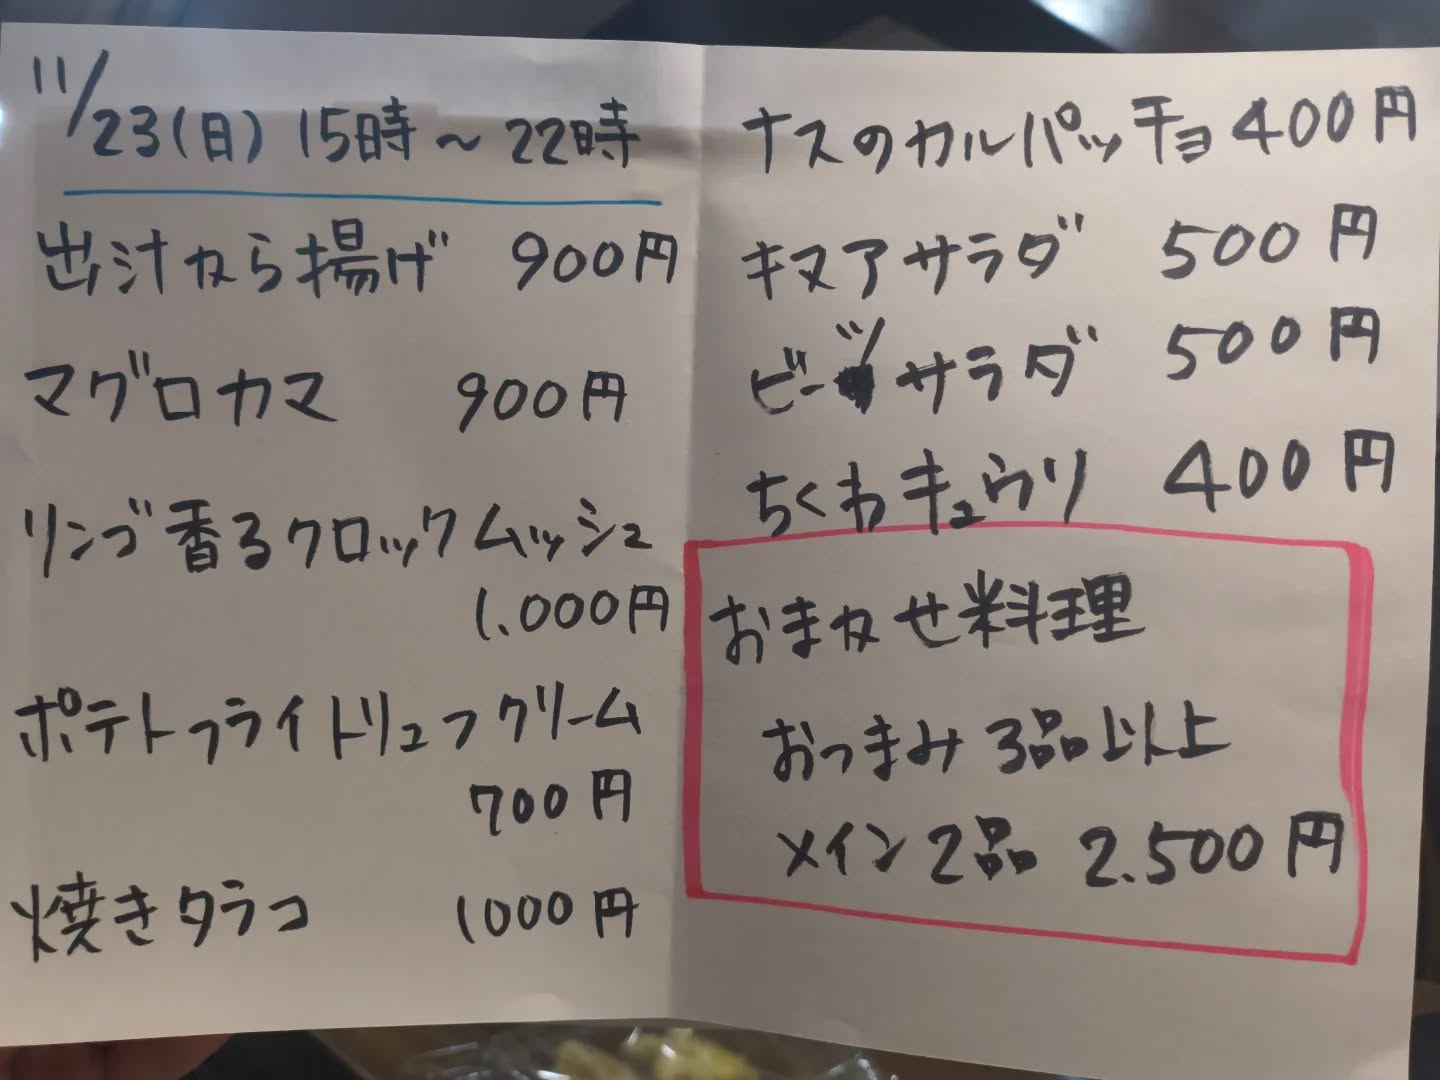 11/23(日) 15時～22時
出汁から揚げ 900円
マグロカマ 900円
リンゴ香るクロックムッシュ
1.000円
ポテトフライトリュフクリーム
700円
焼きタラコ 1000円
ナスのカルパッチョ 400円
キヌアサラダ 500円
ビーツサラダ 500円
ちくわキュウリ 400円
おまかせ料理
おつまみ 3品以上
メイン2品 2.500円